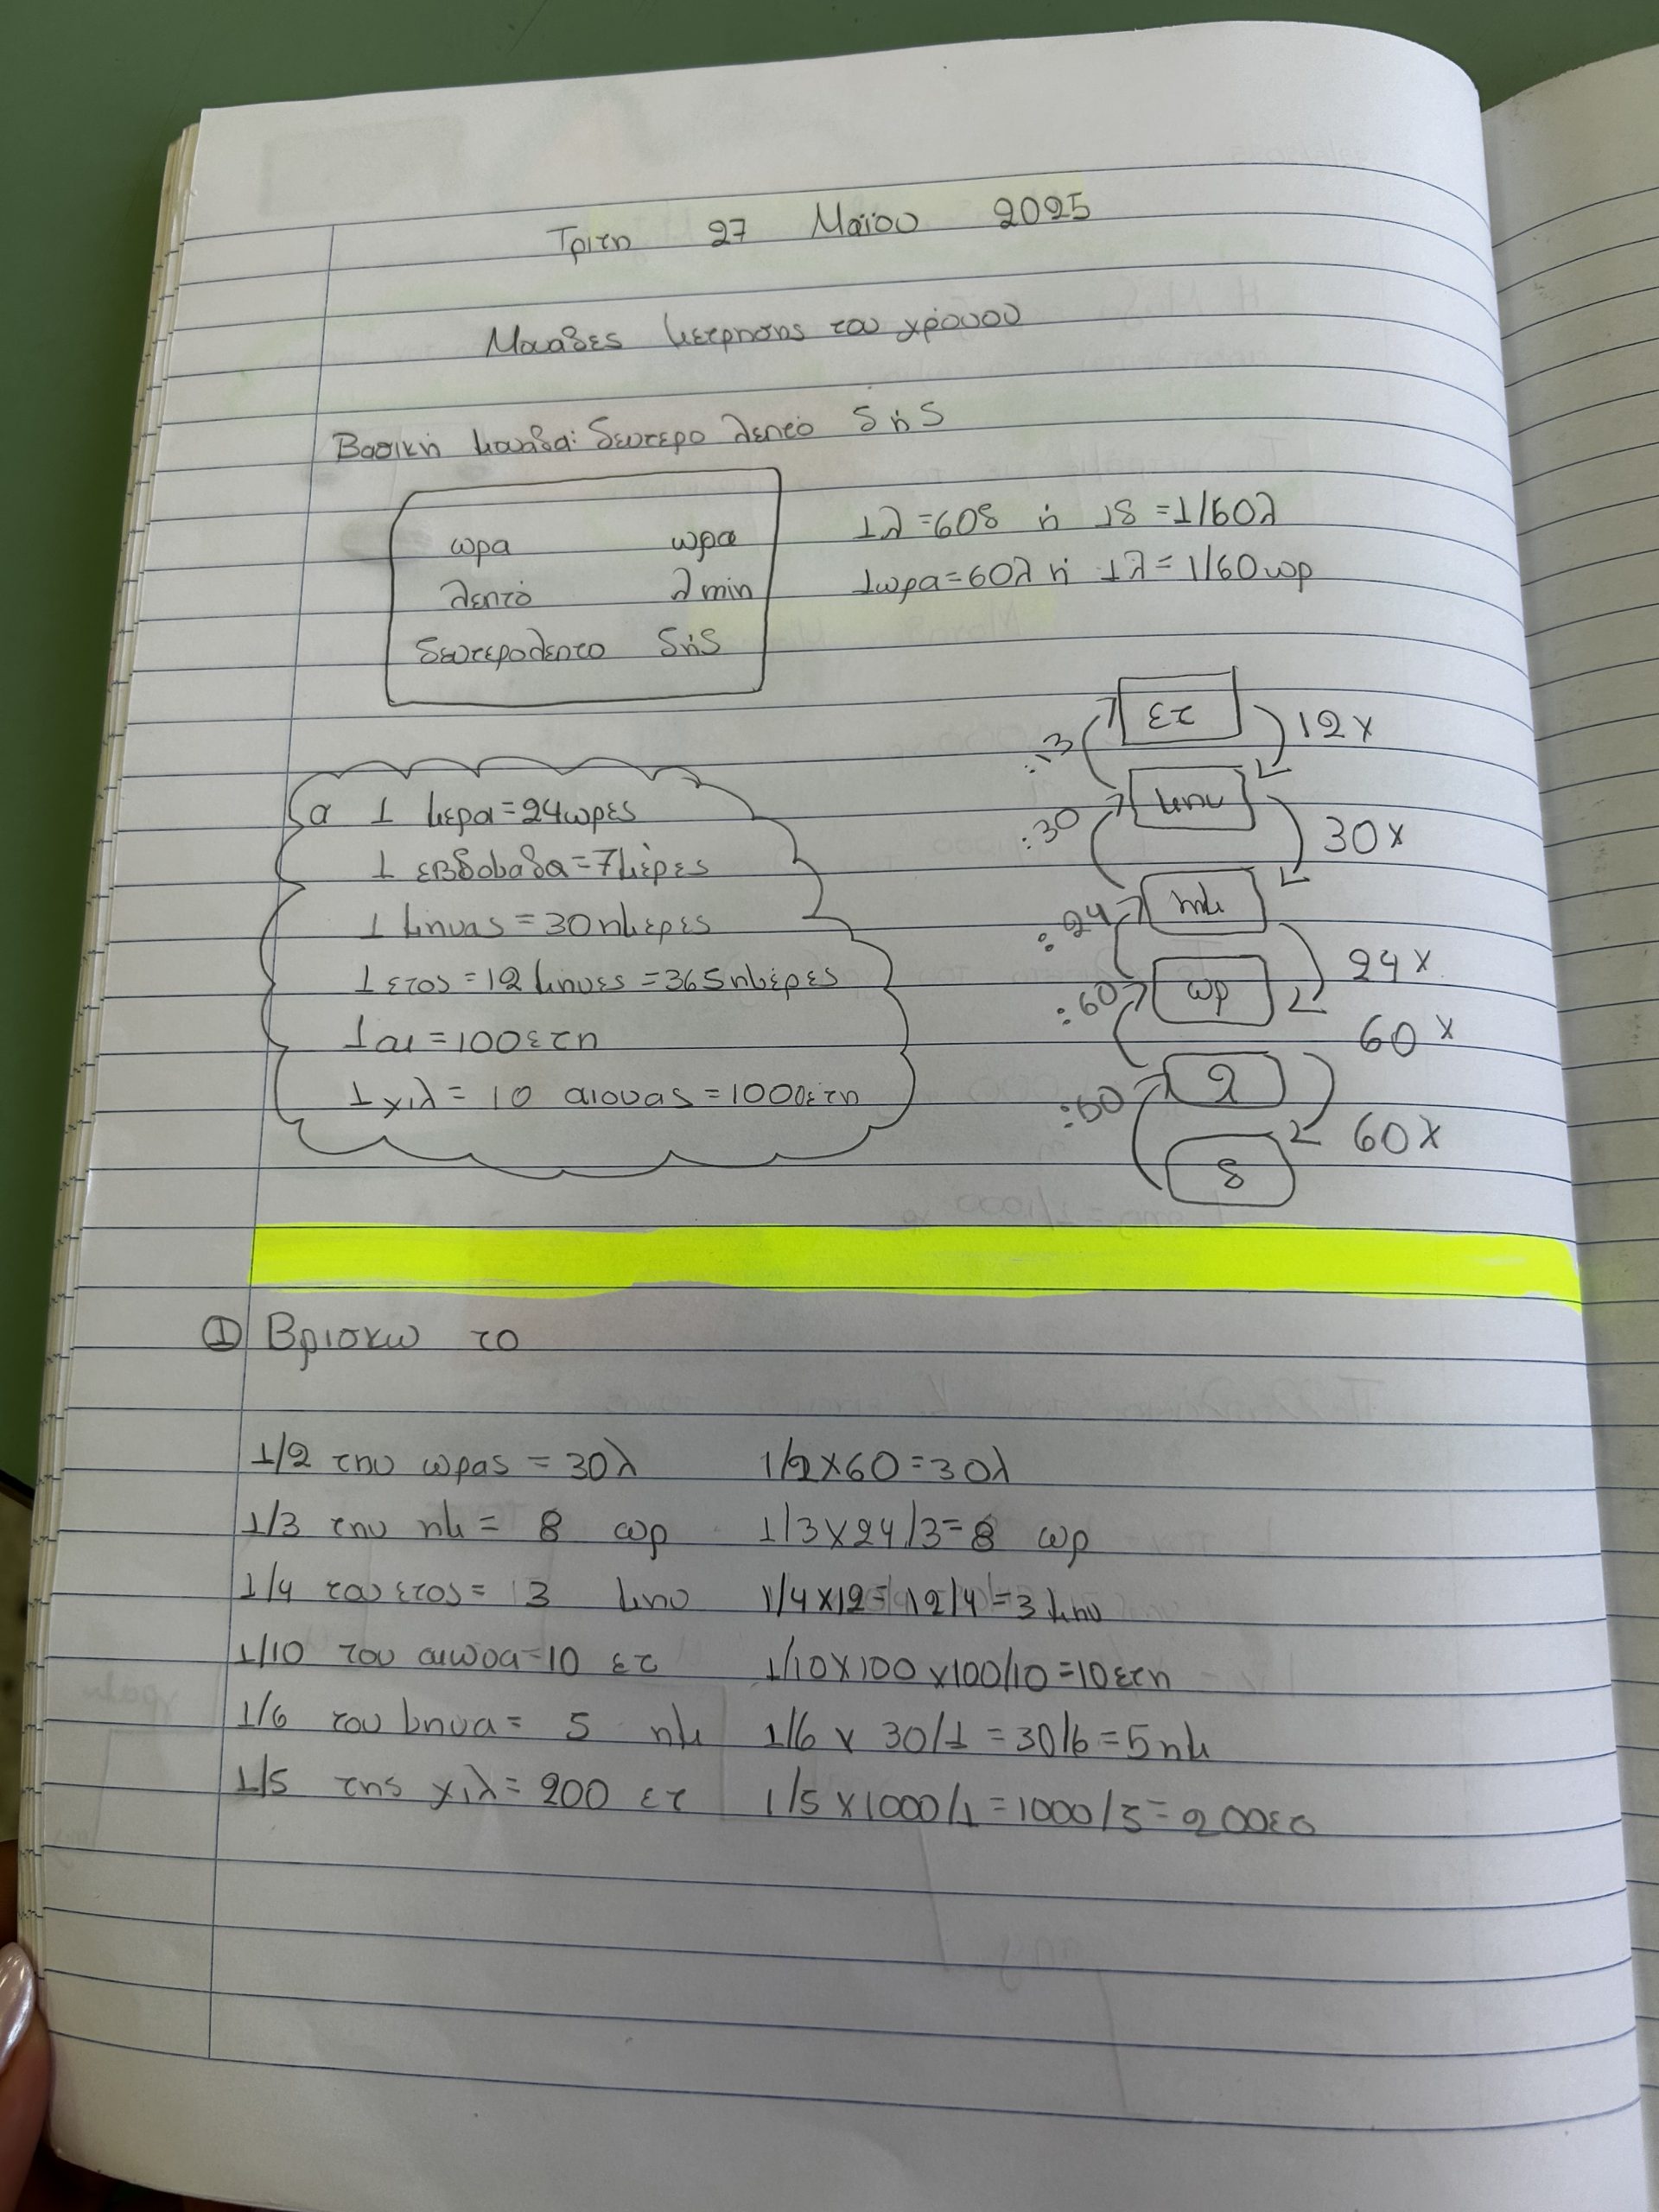 Τριτη 27 Μαϊου 2025
Μοναδες μετρησης του χρόνου
Βασική μοναδα: δευτερο λεπτό δ ή s
ωρα ωρα
λεπτό λ min
δευτερολεπτο δ ή s
1λ=60δ ή 1δ=1/60λ
1ωρα=60λ ή 1λ=1/60ωρ
α 1 μερα=24ωρες
1 εβδοβαδα=7μέρες
1 μηνας=30ημερες
1 ετος=12 μηνες=365ημέρες
1αι=100ετη
1χιλ=10 αιονας=1000έτη
ετ
:13
12x
μην
:30
30x
ημ
:24
24x
ωρ
:60
60x
λ
:60
60x
δ
① Βρισκω το
1/2 την ωρας=30λ 1/2x60=30λ
1/3 την ημ= 8 ωρ 1/3x24/3=8 ωρ
1/4 του ετος= 3 μην 1/4x12=12/4=3 μην
1/10 του αιωνα=10 ετ 1/10x100x100/10=10ετη
1/6 του μηνα= 5 ημ 1/6 x 30/1=30/6=5ημ
1/5 της χιλ=200 ετ 1/5x1000/1=1000/5=200ετ